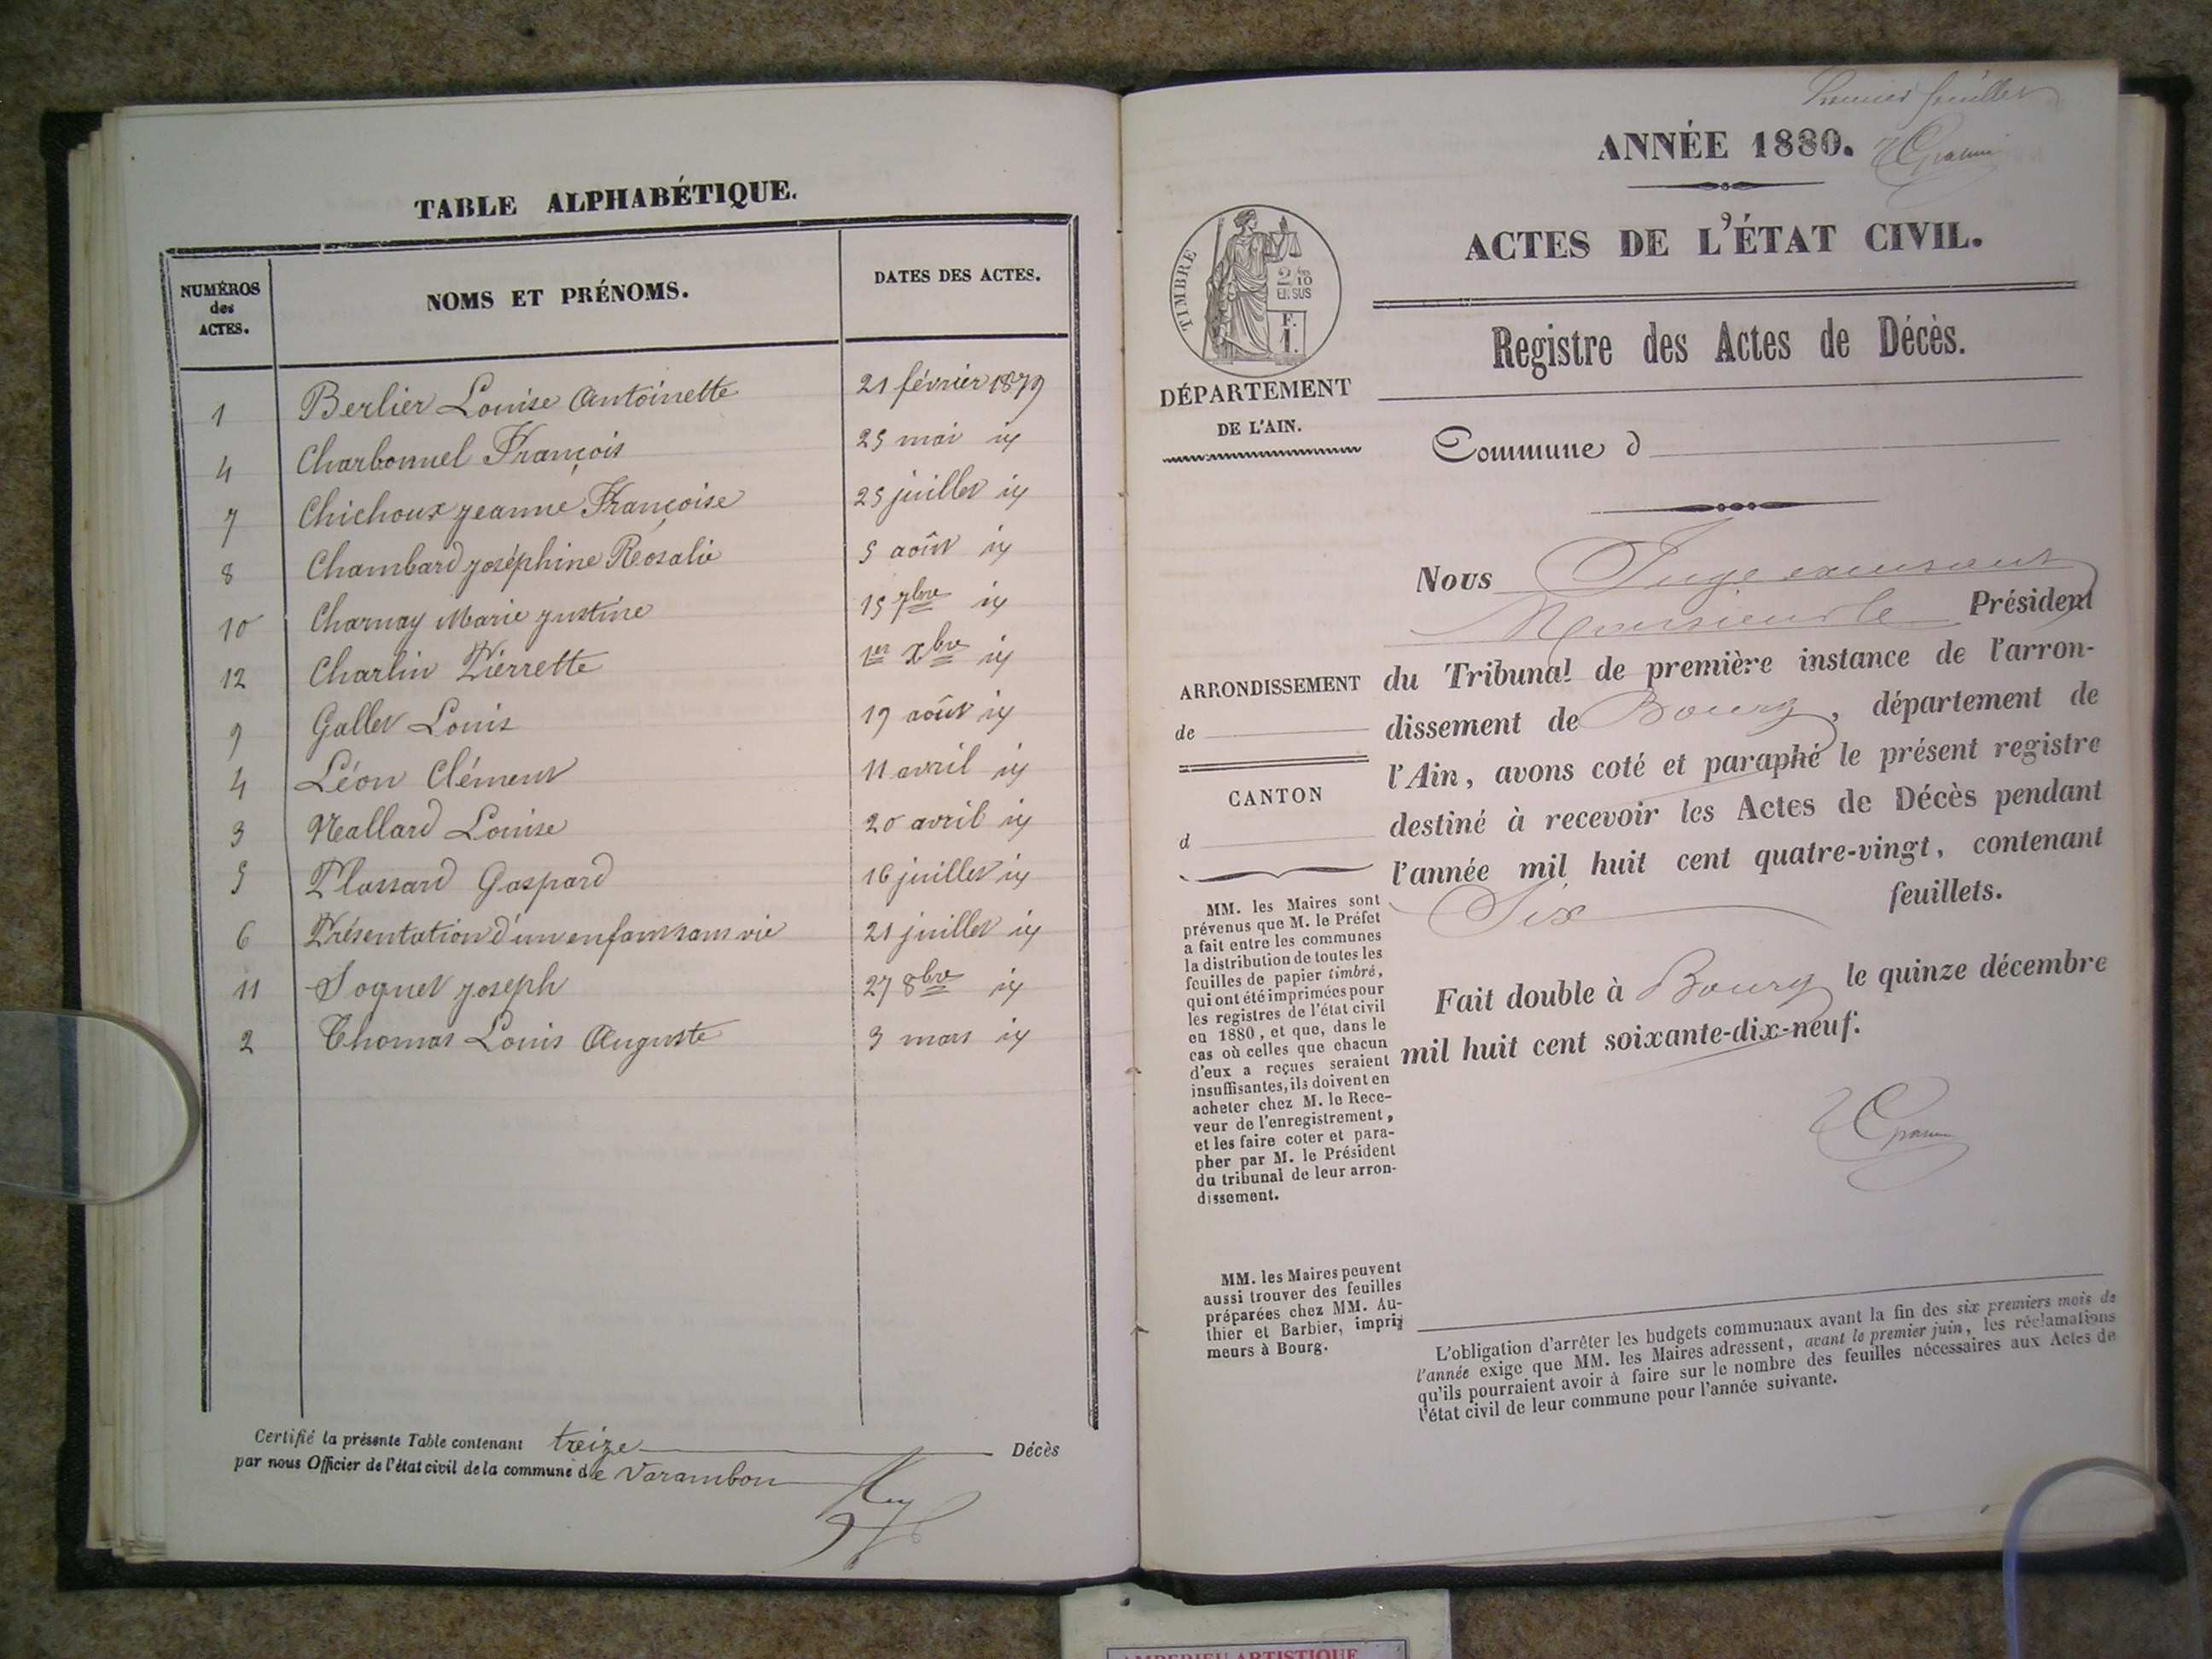 TABLE ALPHABÉTIQUE.
NUMÉROS des ACTES.
NOMS ET PRÉNOMS.
DATES DES ACTES.
1 Berlier Louise Antoinette 21 février 1879
4 Charbonnel François 25 mai id
7 Chichoux Jeanne Françoise 25 juillet id
8 Chambard Joséphine Rosalie 5 août id
10 Charnay Marie Justine 15 7bre id
12 Charlin Pierrette 1er Xbre id
9 Gallet Louis 19 août id
4 Léon Clément 11 avril id
3 Mallard Louise 20 avril id
5 Plassard Gaspard 16 juillet id
6 Présentation d'un enfant sans vie 21 juillet id
11 Soquet Joseph 27 8bre id
2 Thomas Louis Auguste 3 mars id
Certifié la présente Table contenant treize Décès
par nous Officier de l'état civil de la commune de Varambon
Premier feuillet
ANNÉE 1880.
ACTES DE L'ÉTAT CIVIL.
TIMBRE
2/10
EN SUS
F.
1.
Registre des Actes de Décès.
DÉPARTEMENT
DE L'AIN.
Commune d
Nous Juge
Monsieur le Président
ARRONDISSEMENT
de
CANTON
d
du Tribunal de première instance de l'arron-
dissement de Bourg, département de
l'Ain, avons coté et paraphé le présent registre
destiné à recevoir les Actes de Décès pendant
l'année mil huit cent quatre-vingt, contenant
Six feuillets.
Fait double à Bourg le quinze décembre
mil huit cent soixante-dix-neuf.
MM. les Maires sont
prévenus que M. le Préfet
a fait entre les communes
la distribution de toutes les
feuilles de papier timbré,
qui ont été imprimées pour
les registres de l'état civil
en 1880, et que, dans le
cas où celles que chacun
d'eux a reçues seraient
insuffisantes, ils doivent en
acheter chez M. le Rece-
veur de l'enregistrement,
et les faire coter et para-
pher par M. le Président
du tribunal de leur arron-
dissement.
MM. les Maires peuvent
aussi trouver des feuilles
préparées chez MM. Au-
thier et Barbier, impri-
meurs à Bourg.
L'obligation d'arrêter les budgets communaux avant la fin des six premiers mois de
l'année exige que MM. les Maires adressent, avant le premier juin, les réclamations
qu'ils pourraient avoir à faire sur le nombre des feuilles nécessaires aux Actes de
l'état civil de leur commune pour l'année suivante.
AMBERIEU ARTISTIQUE